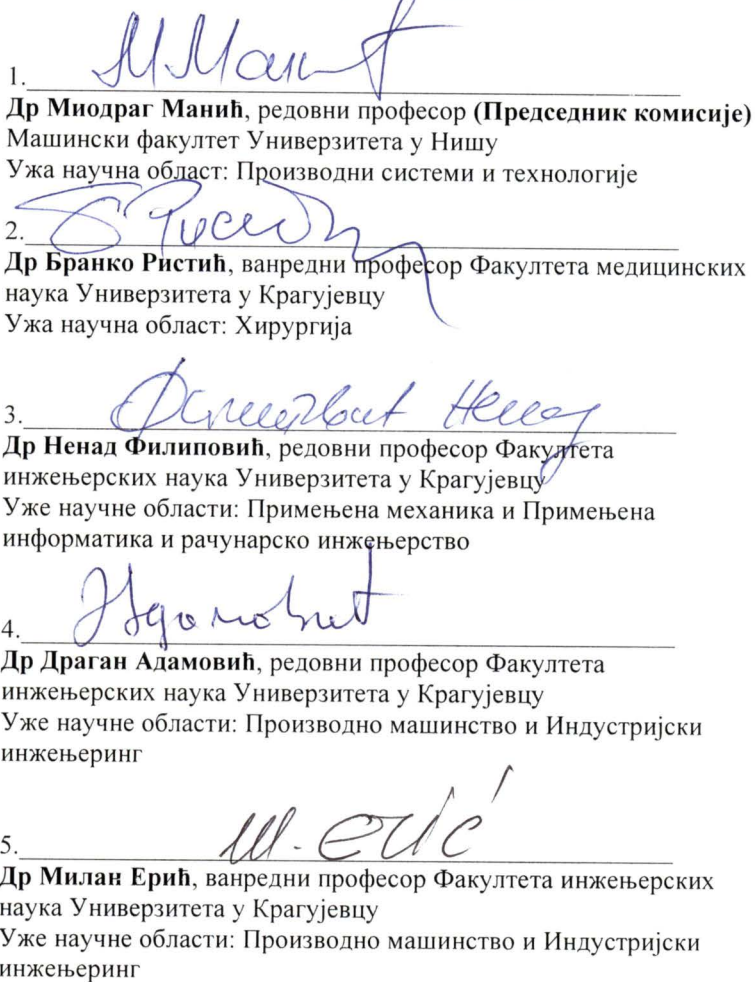 М Манић
1.
Др Миодраг Манић, редовни професор (Председник комисије)
Машински факултет Универзитета у Нишу
Ужа научна област: Производни системи и технологије
2.
Др Бранко Ристић, ванредни професор Факултета медицинских
наука Универзитета у Крагујевцу
Ужа научна област: Хирургија
Филиповић Ненад
3.
Др Ненад Филиповић, редовни професор Факултета
инжењерских наука Универзитета у Крагујевцу
Уже научне области: Примењена механика и Примењена
информатика и рачунарско инжењерство
4.
Др Драган Адамовић, редовни професор Факултета
инжењерских наука Универзитета у Крагујевцу
Уже научне области: Производно машинство и Индустријски
инжењеринг
M. ERIĆ
5.
Др Милан Ерић, ванредни професор Факултета инжењерских
наука Универзитета у Крагујевцу
Уже научне области: Производно машинство и Индустријски
инжењеринг